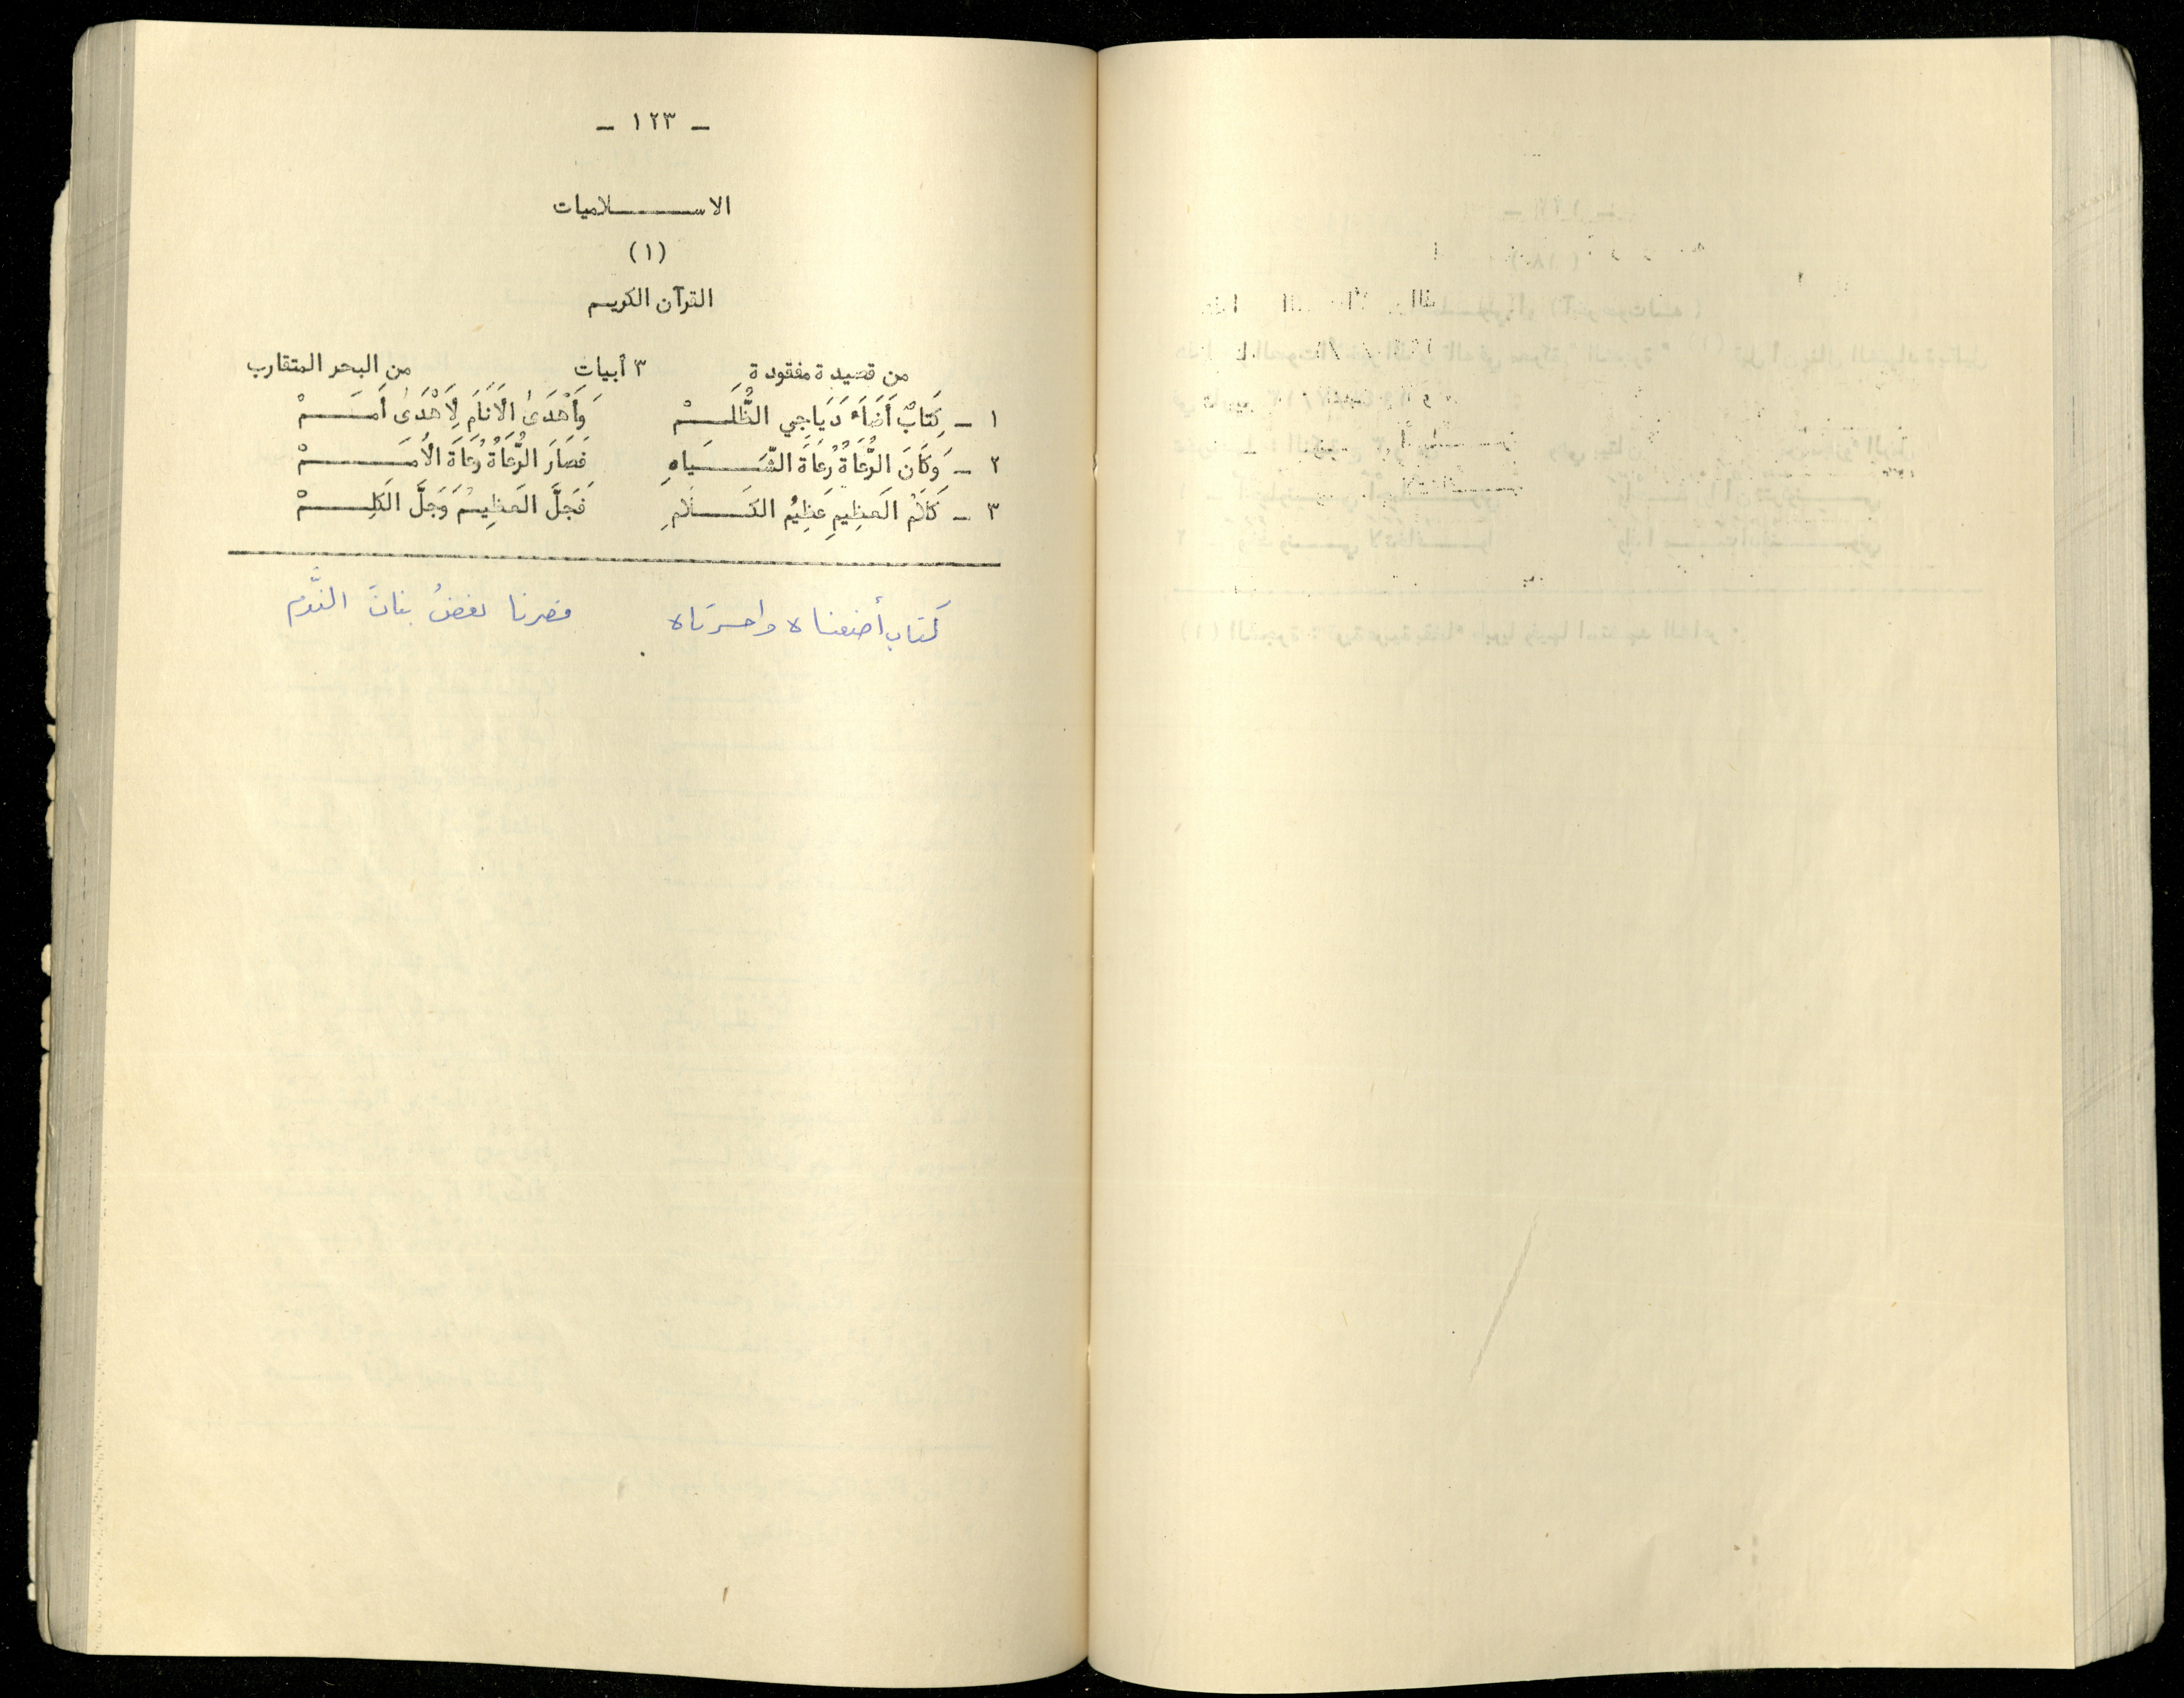 - ١٢٣ -
الاسـلاميات
(١)
القرآن الكريـم
من قصيدة مفقودة ٣ أبيات من البحر المتقارب
١ - كِتَابٌ أَضَاءَ دَيَاجِي الظُّلَـمْ وَأَهْدَىٰ الأَنَامَ لِأَهْدَىٰ أَمَـمْ
٢ - وَكَانَ الرُّعَاةُ رُعَاةَ الشِّـيَاهِ فَصَارَ الرُّعَاةُ رُعَاةَ الأُمَـمْ
٣ - كَلَامُ العَظِيمِ عَظِيمُ الكَـلَامِ فَجَلَّ العَظِيـمُ وَجَلَّ الكَلِـمْ
كتاب أضعناه واحسرتاه فصرنا نعضُ بنانَ النَّدم